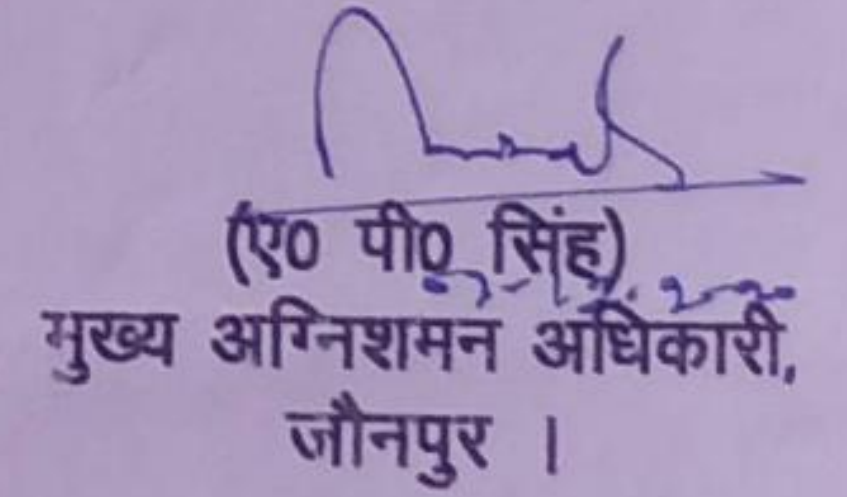 (ए0 पी0 सिंह)
मुख्य अग्निशमन अधिकारी,
जौनपुर ।